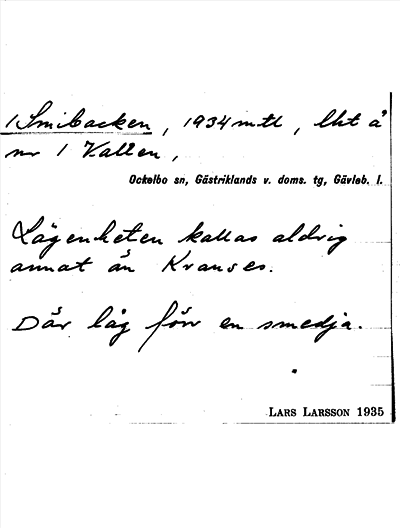 1 Smibacken, 1934 mtl, lht å
nr 1 Vallen,
Ockelbo sn, Gästriklands v. doms. tg, Gävleb. l.
Lägenheten kallas aldrig
annat än Kranses.
Där låg förr en smedja.
LARS LARSSON 1935